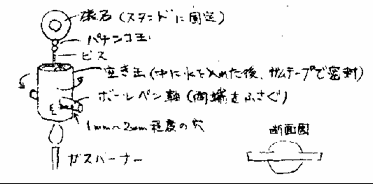 磁石 (スタンドに固定)
パチンコ玉
ビス
空き缶 (中に水を入れた後、ガムテープで密封)
ボールペン軸 (両端をふさぐ)
1mm~2mm程度の穴
ガスバーナー
断面図